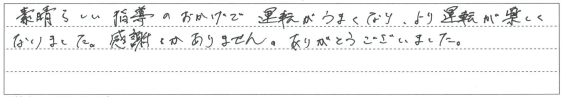 素晴らしい指導のおかげで運転がうまくなり、より運転が楽しく
なりました。感謝しかありません。ありがとうございました。